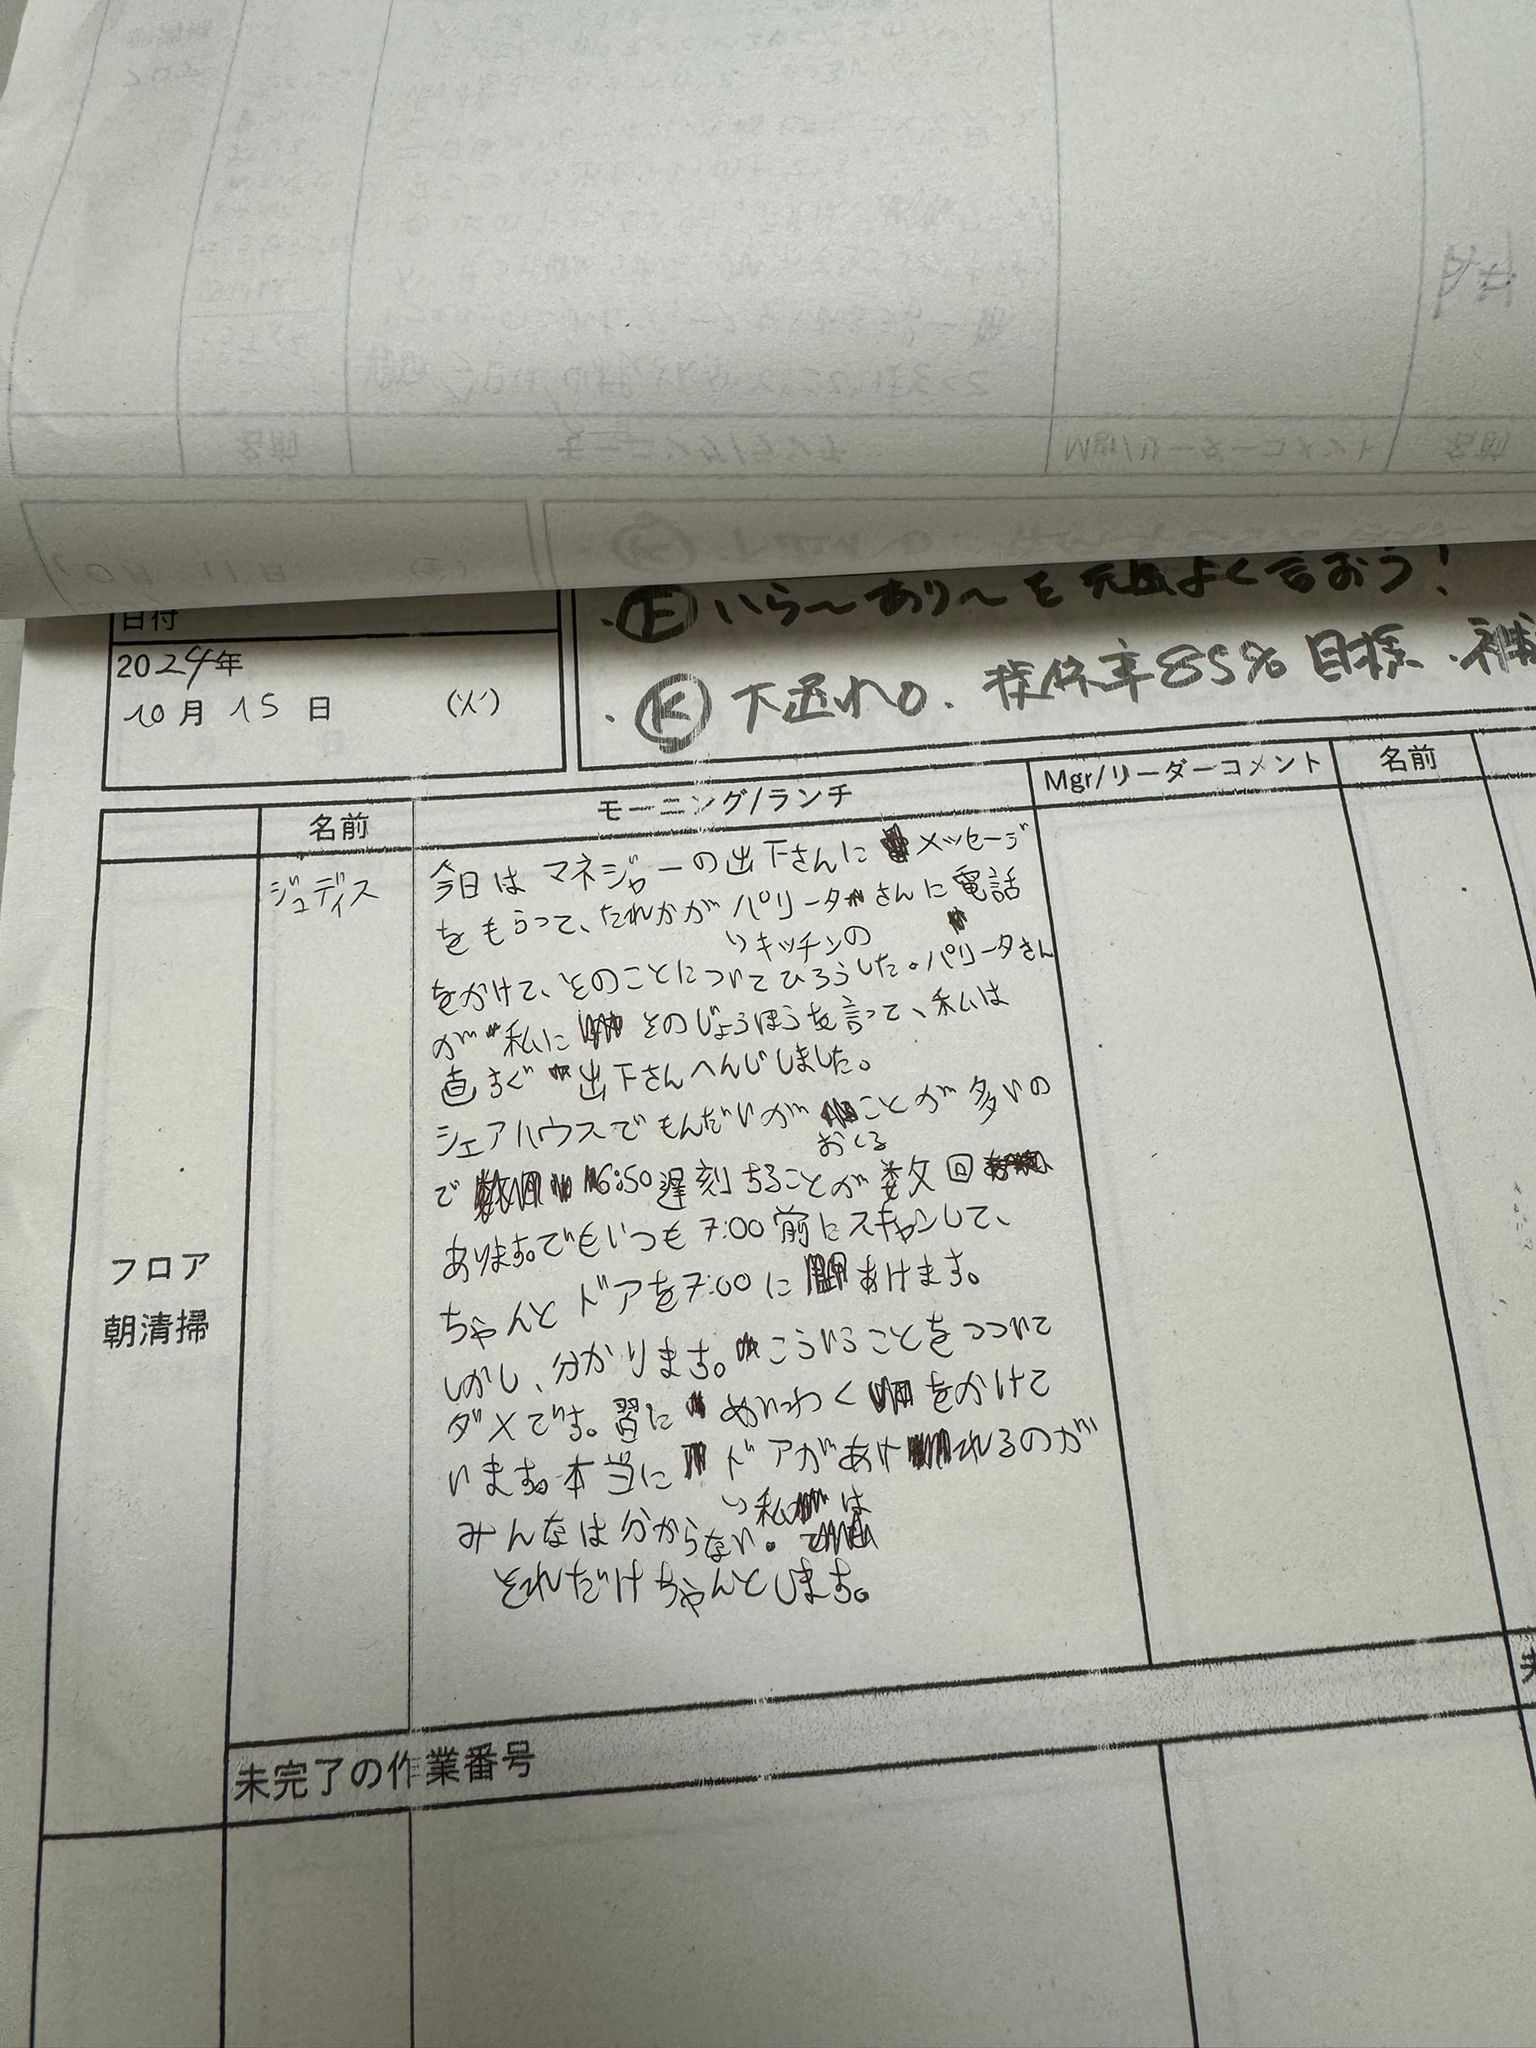 日付
2024年
10月15日 (火)
・Ⓕいら〜あり〜を元気よく言おう!
・Ⓚ下
85%目標
名前
モーニング/ランチ
Mgr/リーダーコメント
名前
ジュディス
今日はマネジャーの出下さんにメッセージ
をもらって、だれかがパリータさんに電話
いキッチンの
をかけて、そのことについてひろうした。パリータさん
が私にそのじょうほうを言って、私は
直すぐ出下さんへんじしました。
シェアハウスでもんだいがことが多いの
おくる
で6:50遅刻することが数回
あります。でもいつも7:00前にスキャンして、
ちゃんとドアを7:00にあけます。
しかし、分かります。こういうことをつづいて
ダメです。習にめいわくをかけて
います。本当にドアがあけれるのが
みんなは分からない。
い私は
それだけちゃんとします。
フロア
朝清掃
未完了の作業番号